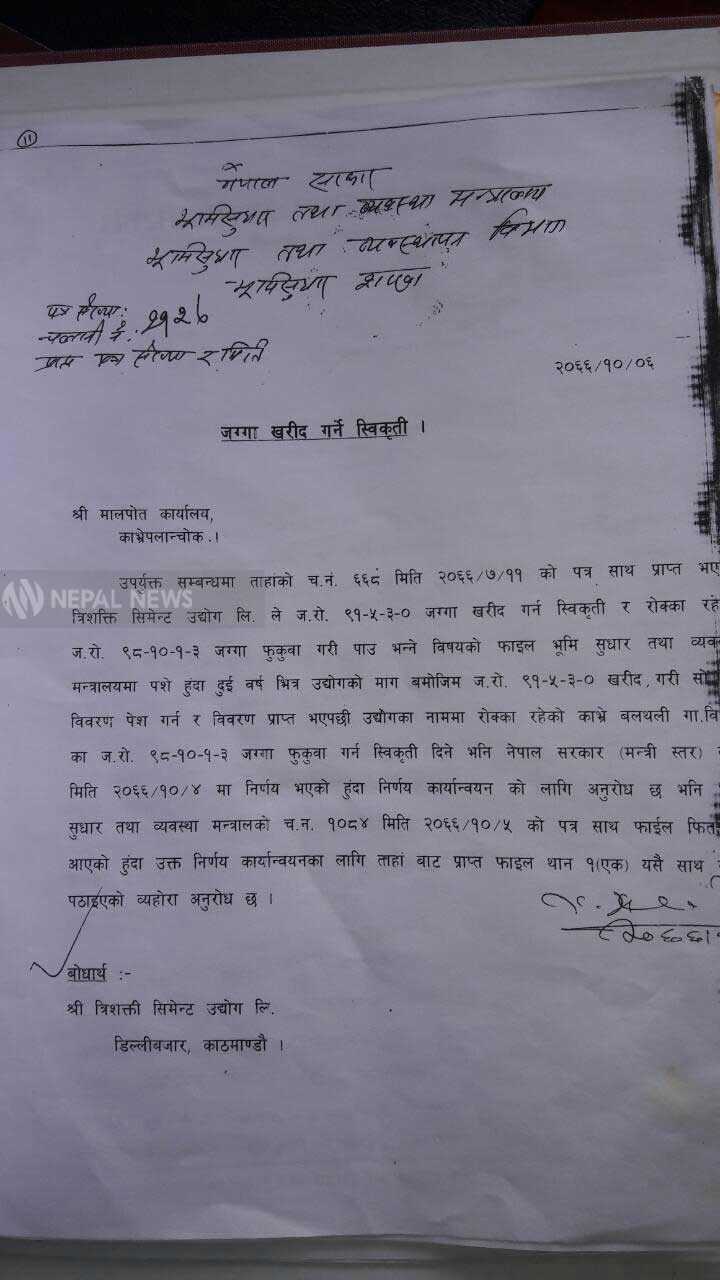 ११
नेपाल सरकार
भूमिसुधार तथा व्यवस्था मन्त्रालय
भूमिसुधार तथा व्यवस्थापन विभाग
भूमिसुधार शाखा
पत्र संख्या:
चलानी नं.:
प्राप्त पत्र संख्या र मिति
२०६६/१०/०६
जग्गा खरीद गर्ने स्विकृती ।
श्री मालपोत कार्यालय,
काभ्रेपलान्चोक ।
उपर्युक्त सम्बन्धमा ताहांको च.नं. ६६८ मिति २०६६/७/११ को पत्र साथ प्राप्त भए
NEPAL NEWS
त्रिशक्ति सिमेन्ट उद्योग लि. ले ज.रो. ९१-५-३-० जग्गा खरीद गर्न स्विकृती र रोक्का रहे
ज.रो. ९८-१०-१-३ जग्गा फुकुवा गरी पाउ भन्ने विषयको फाइल भूमि सुधार तथा व्यव
मन्त्रालयमा पशे हुंदा दुई वर्ष भित्र उद्योगको माग बमोजिम ज.रो. ९१-५-३-० खरीद गरी सो
विवरण पेश गर्न र विवरण प्राप्त भएपछी उद्योगका नाममा रोक्का रहेको काभ्रे बलथली गा.वि
का ज.रो. ९८-१०-१-३ जग्गा फुकुवा गर्न स्विकृती दिने भनि नेपाल सरकार (मन्त्री स्तर)
मिति २०६६/१०/४ मा निर्णय भएको हुंदा निर्णय कार्यान्वयन को लागि अनुरोध छ भनि
सुधार तथा व्यवस्था मन्त्रालको च.न. १०८४ मिति २०६६/१०/५ को पत्र साथ फाईल फित
आएको हुंदा उक्त निर्णय कार्यान्वयनका लागि ताहां बाट प्राप्त फाइल थान १(एक) यसै साथ
पठाइएको व्यहोरा अनुरोध छ ।
बोधार्थ :-
श्री त्रिशक्ती सिमेन्ट उद्योग लि.
डिल्लीबजार, काठमाण्डौ ।